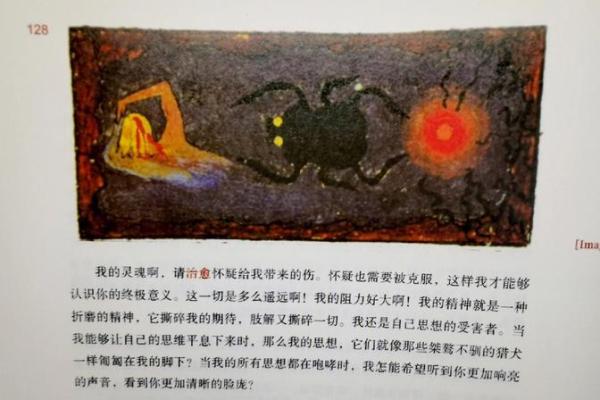 128
[Ima
我的灵魂啊，请治愈怀疑给我带来的伤。怀疑也需要被克服，这样我才能够
认识你的终极意义。这一切是多么遥远啊！我的阻力好大啊！我的精神就是一种
折磨的精神，它撕碎我的期待，肢解又撕碎一切。我还是自己思想的受害者。当
我能够让自己的思维平息下来时，那么我的思想，它们就像那些桀骜不驯的猎犬
一样匍匐在我的脚下？当我的所有思想都在咆哮时，我怎能希望听到你更加响亮
的声音，看到你更加清晰的脸庞？